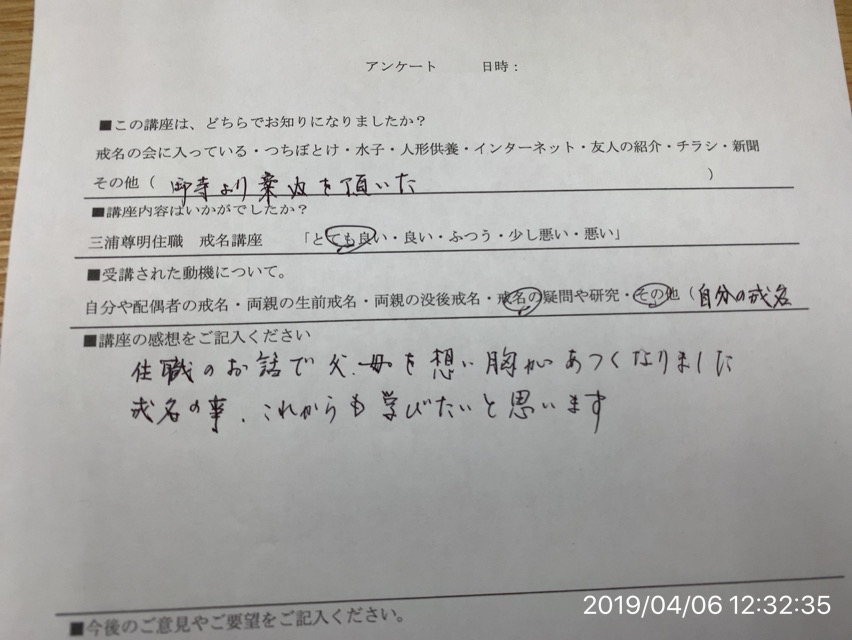 アンケート 日時：
■この講座は、どちらでお知りになりましたか？
戒名の会に入っている・つちぼとけ・水子・人形供養・インターネット・友人の紹介・チラシ・新聞
その他（ 御寺より案内を頂いた ）
■講座内容はいかがでしたか？
三浦尊明住職 戒名講座 「とても良い・良い・ふつう・少し悪い・悪い」
■受講された動機について。
自分や配偶者の戒名・両親の生前戒名・両親の没後戒名・戒名の疑問や研究・その他（自分の戒名
■講座の感想をご記入ください
住職のお話で父、母を想い胸があつくなりました
戒名の事、これからも学びたいと思います
■今後のご意見やご要望をご記入ください。
2019/04/06 12:32:35